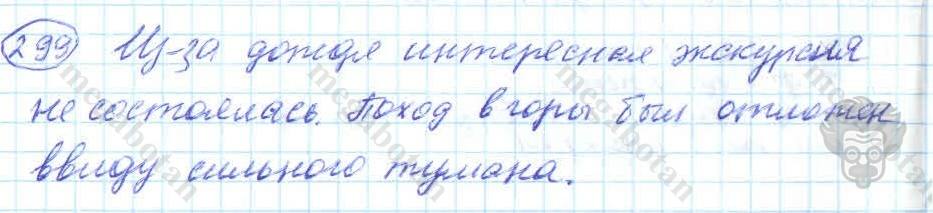 299 Из-за дождя интересная экскурсия
не состоялась. Поход в горы был отложен
ввиду сильного тумана.
megabotan
megabotan
megabotan
megabotan